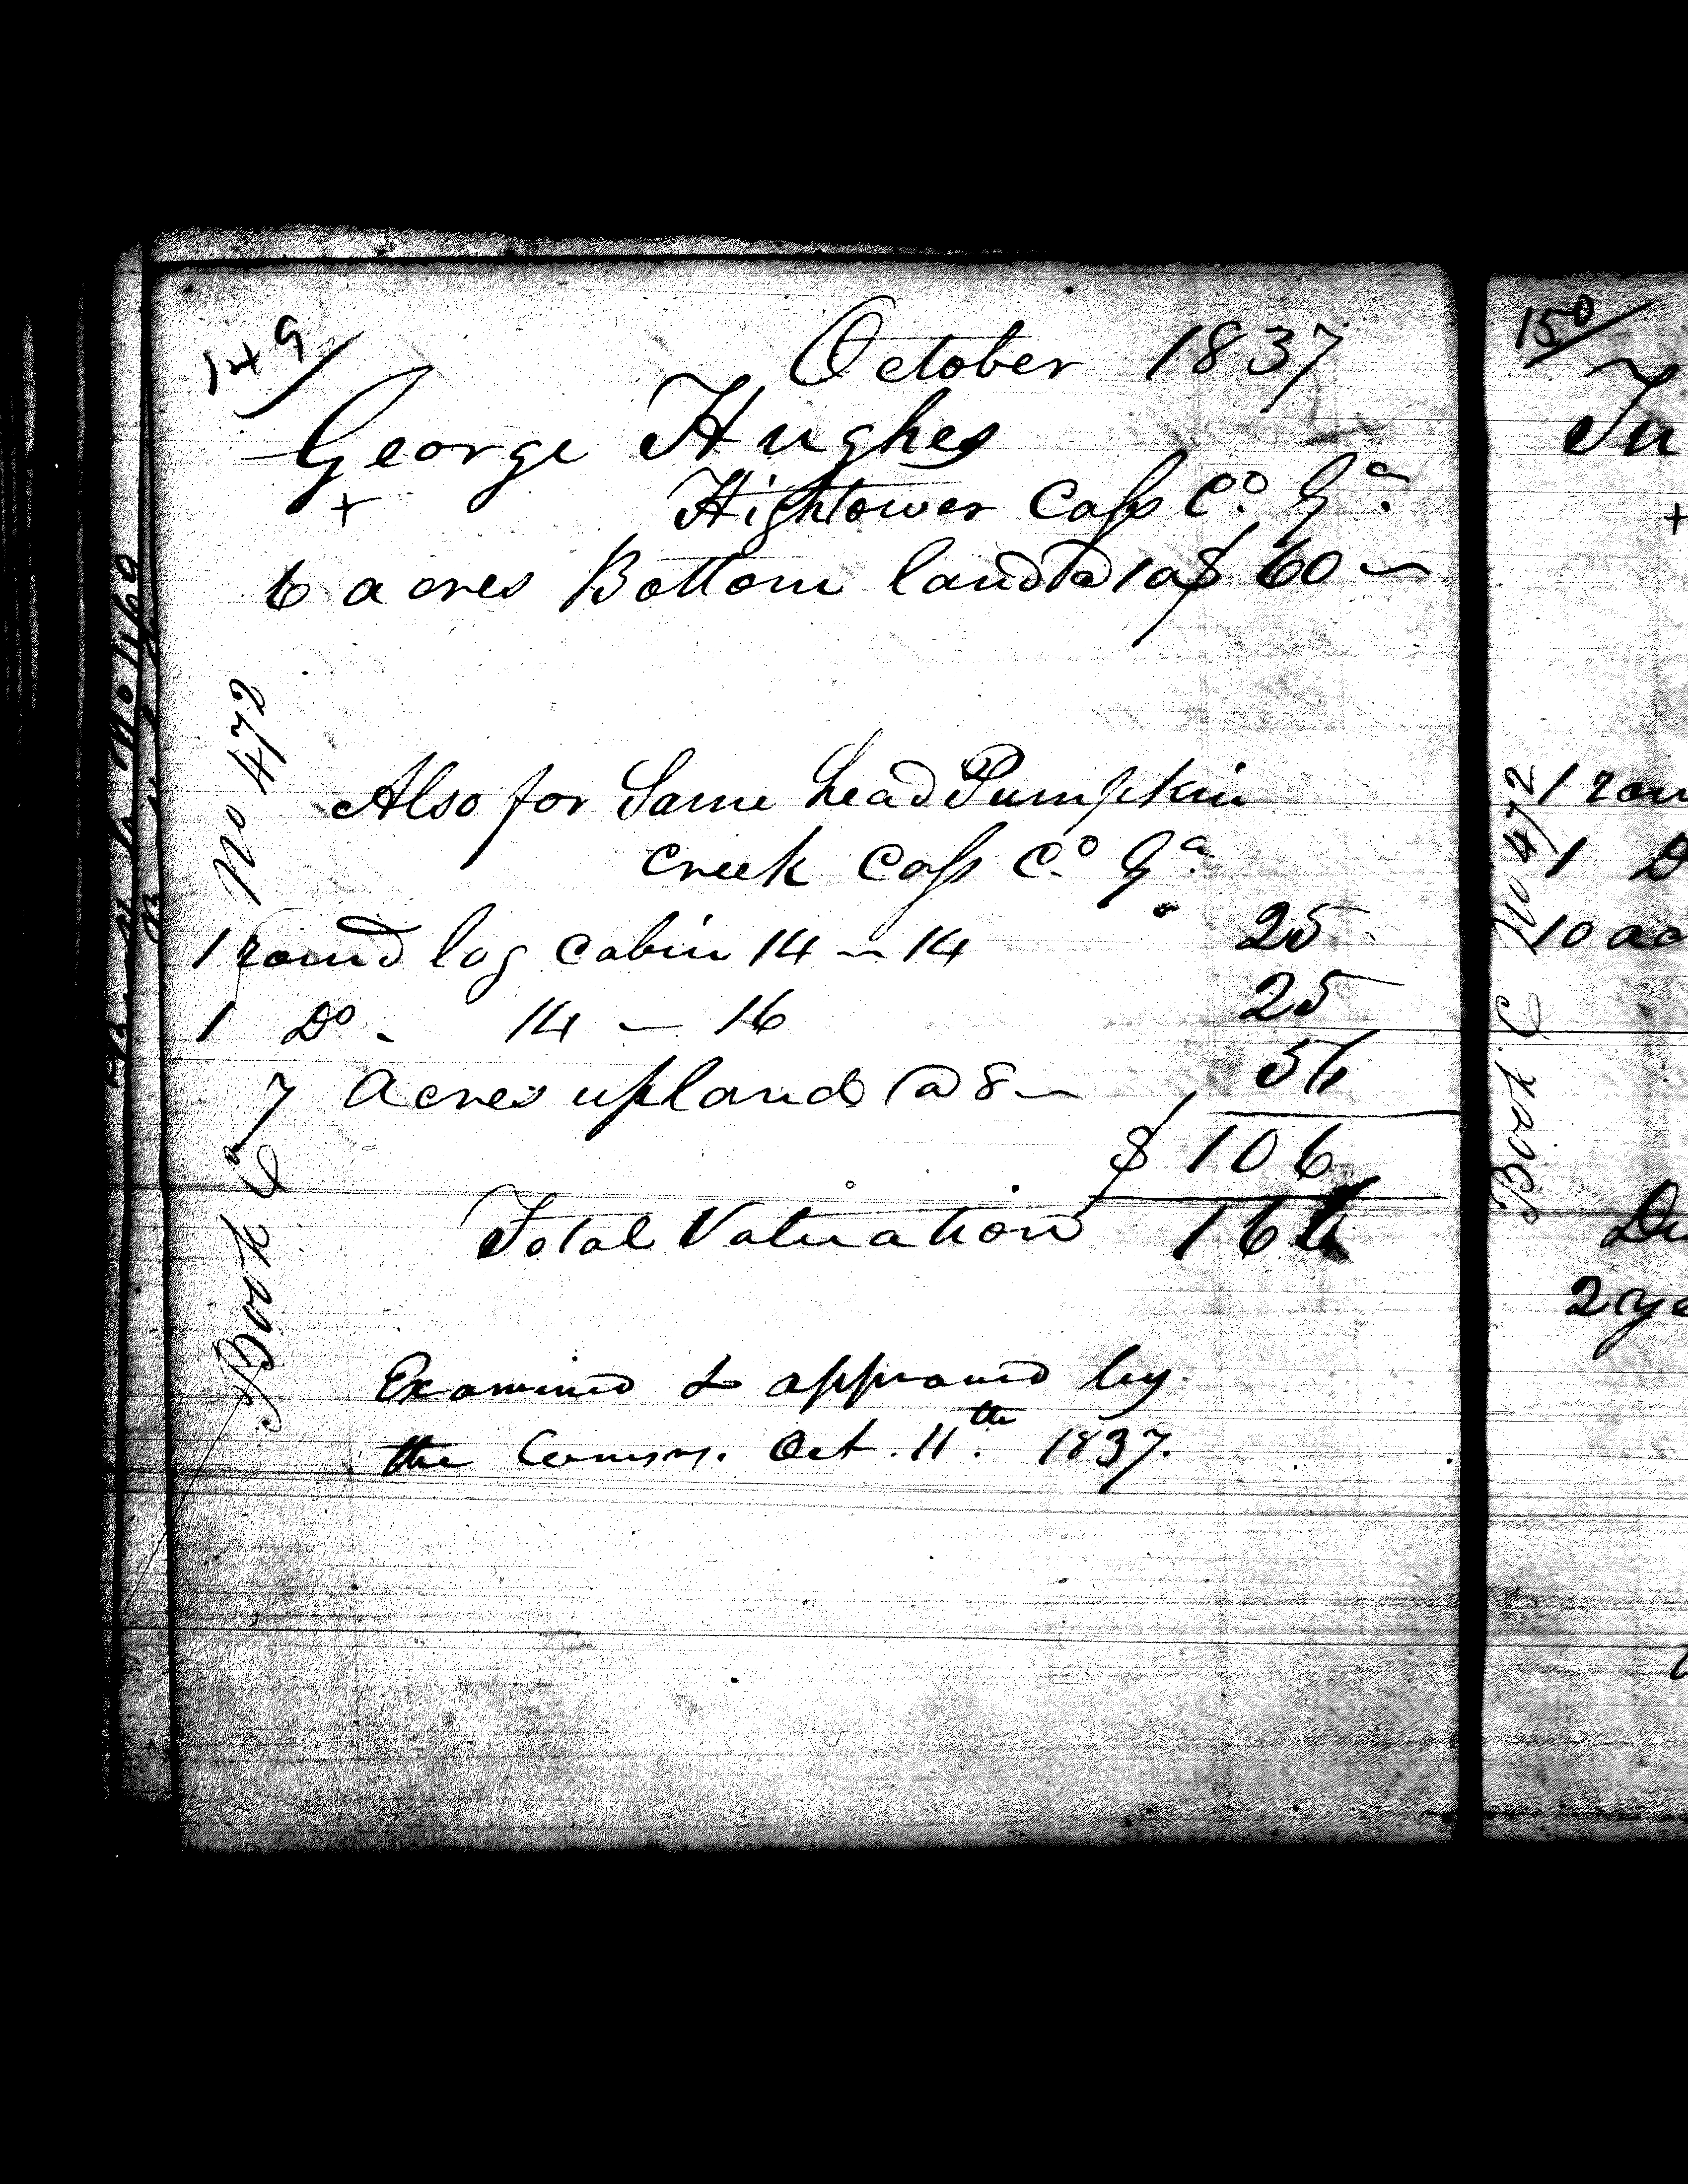 149/
October 1837
George Hughes
+
Hightower Cass Co. Ga.
6 acres Bottom land @ 10 $ 60 ~
No 472
Also for Same head Pumpkin
Creek Cass Co. Ga.
1 round log cabin 14 ~ 14 25
1 Do - 14 — 16 25
7 Acres upland @ 8 ~ 56
$ 106
Total Valuation 166
Book C
Examined & approved by
the Commrs. Oct. 11th 1837.
150/
+
No 472
1
1 D
10 ac
Book C
2 ye